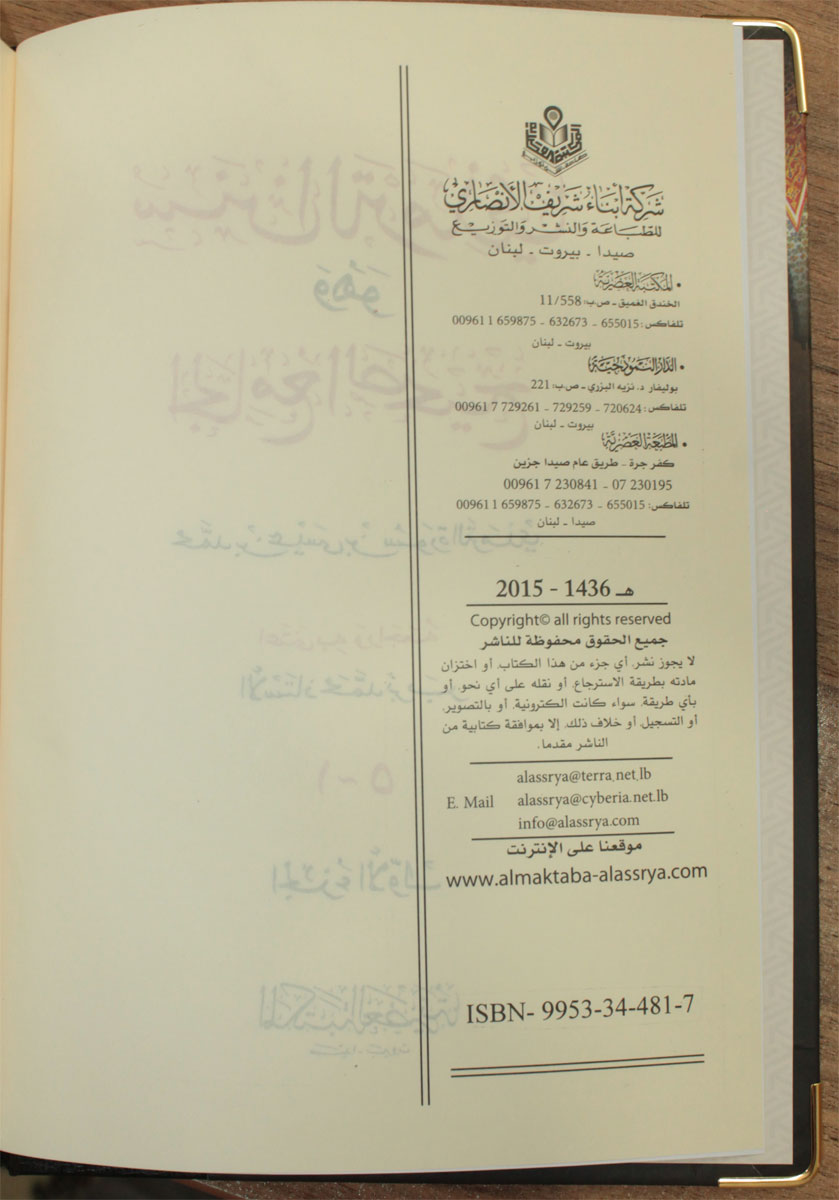 شركة أبناء شريف الأنصاري
للطباعة والنشر والتوزيع
صيدا - بيروت - لبنان
• المكتبة العصرية
الخندق الغميق - ص.ب: 11/558
تلفاكس: 655015 - 632673 - 659875 1 00961
بيروت - لبنان
• الدار النموذجية
بوليفار د. نزيه البزري - ص.ب: 221
تلفاكس: 720624 - 729259 - 729261 7 00961
بيروت - لبنان
• المطبعة العصرية
كفر جرة - طريق عام صيدا جزين
00961 7 230841 - 07 230195
تلفاكس: 655015 - 632673 - 659875 1 00961
صيدا - لبنان
2015 - 1436 هـ
Copyright© all rights reserved
جميع الحقوق محفوظة للناشر
لا يجوز نشر، أي جزء من هذا الكتاب، أو اختزان
مادته بطريقة الاسترجاع، أو نقله على أي نحو، أو
بأي طريقة، سواء كانت الكترونية، أو بالتصوير،
أو التسجيل، أو خلاف ذلك، إلا بموافقة كتابية من
الناشر مقدما.
alassrya@terra.net.lb
E. Mail alassrya@cyberia.net.lb
info@alassrya.com
موقعنا على الإنترنت
www.almaktaba-alassrya.com
ISBN- 9953-34-481-7